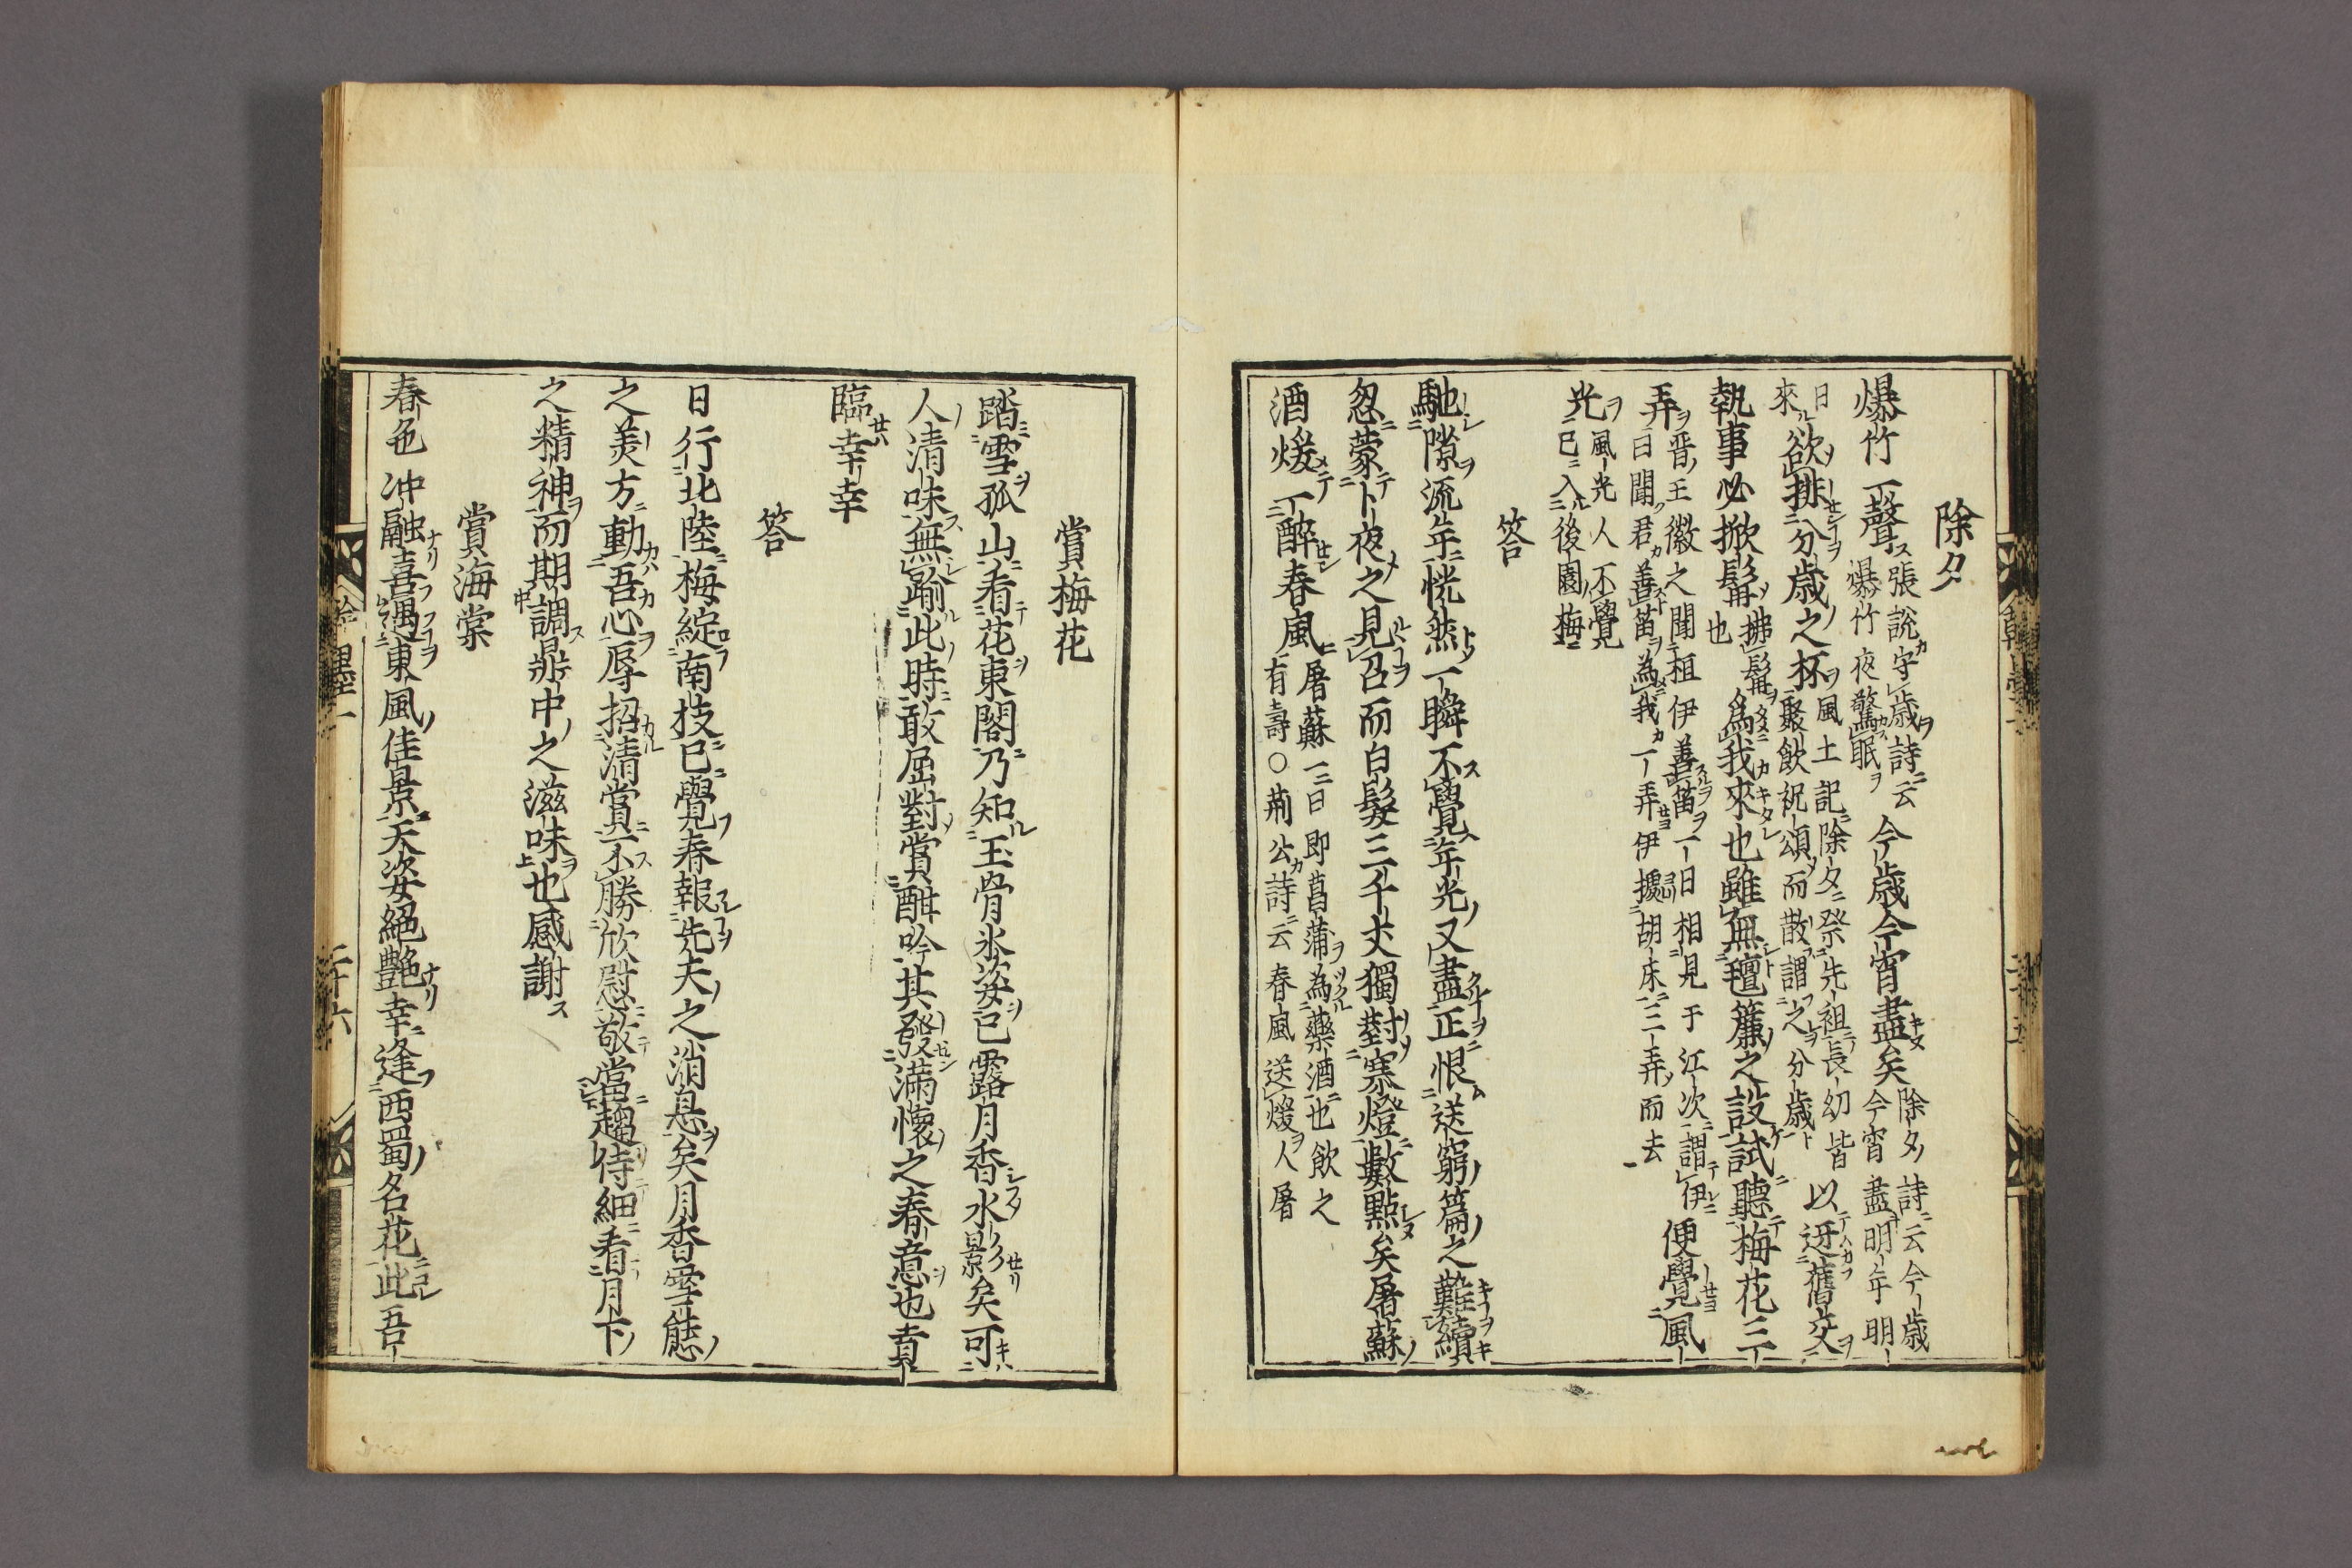 除夕
爆竹一聲張說守歲詩云爆竹夜驚眠今歲今宵盡矣除夕詩云今歲今宵盡明年明
日來欲排分歲之杯風土記除夕祭先祖長幼聚飲祝頌而散謂之分歲皆以迓舊交
執事必掀髯掀髯也為我來也雖無氊簾之設試聽梅花三
弄晋王徽之聞桓伊善笛一日相見于江次謂伊曰聞君善笛為我一弄伊據胡床三弄而去便覺風
光風光人不覺已入後園梅
答
馳隙流年恍然一瞬不覺年光又盡正恨送窮篇之難續
忽蒙卜夜之見召而白髮三千丈獨對寒燈數點矣屠蘇
酒煖一醉春風屠蘇二日即菖蒲為藥酒也飲之有壽○荊公詩云春風送煖人屠
賞梅花
踏雪孤山看花東閣乃知玉骨氷姿已露月香水影矣可
人清味無踰此時敢屈對賞酣吟其發滿懷之春意也賁
臨幸幸
答
日行北陸梅綻南技已覺春報先夫之消息矣月香雪態
之美方動吾心辱招清賞不勝欣慰敬當趨侍細看月下
之精神而期調鼎中之滋味也感謝
賞海棠
春色冲融喜遇東風佳景天姿絕艷幸逢西蜀名花此吾
二十六